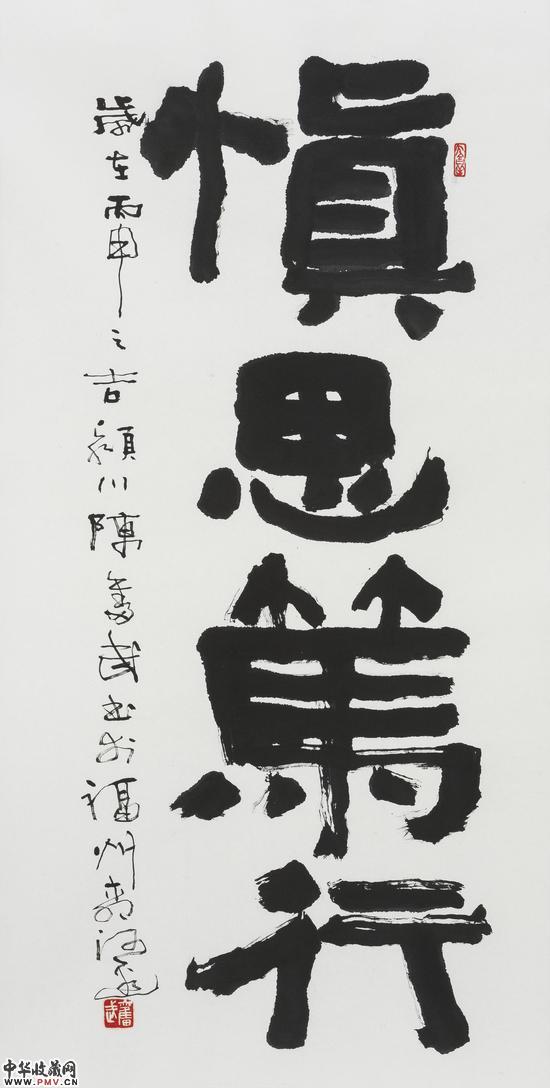 慎思篤行
歲在丙申之吉潁川陳奮武書於福州
中华收藏网
WWW.PMV.CN